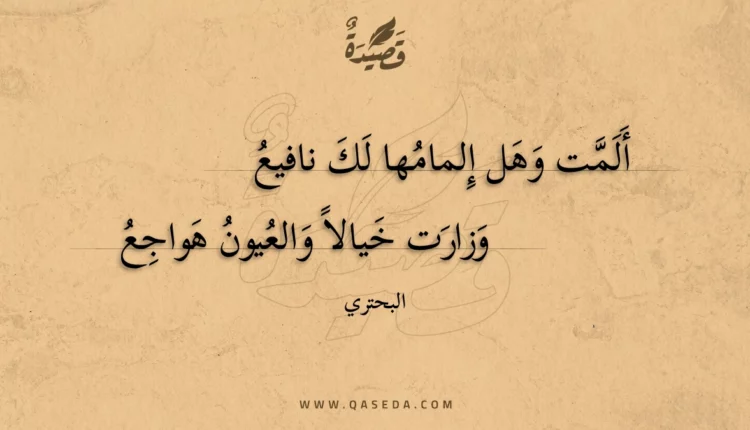 قَصِيْدَةٌ
أَلَمَّت وَهَل إِلمامُها لَكَ نافيعُ
وَزارَت خَيالاً وَالعُيونُ هَواجِعُ
البحتري
WWW.QASEDA.COM